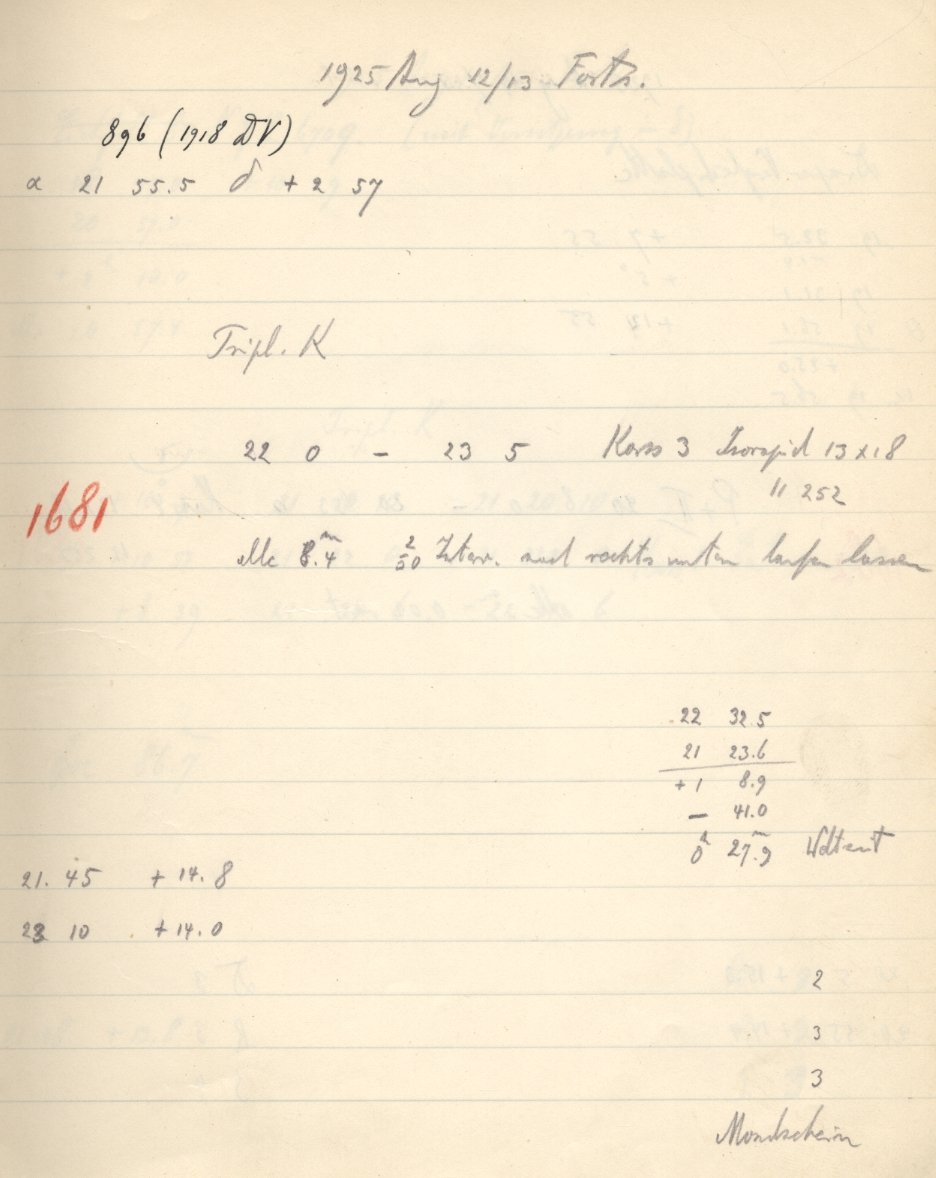 1925 Aug 12/13 Forts.
896 (1918 DV)
α 21 55.5 δ + 2 57
Tripl. K
22 0 - 23 5 Kass 3 Isorapid 13 x 18
1681
11 252
8.4ᵐ 2/50 Interv. nach rechts unten laufen lassen
22 32.5
21 23.6
+ 1 8.9
- 41.0
0ʰ 27.9ᵐ Weltzeit
21. 45 + 14.8
23 10 + 14.0
2
3
3
Mondschein